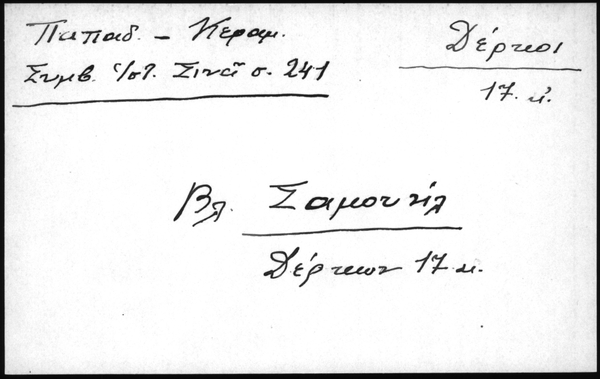 Παπαδ. - Κεραμ.
Συμβ. ἱστ. Σινᾶ σ. 241
Δέρκοι
17. κ.
Βλ. Σαμουήλ
Δέρκων 17 κ.